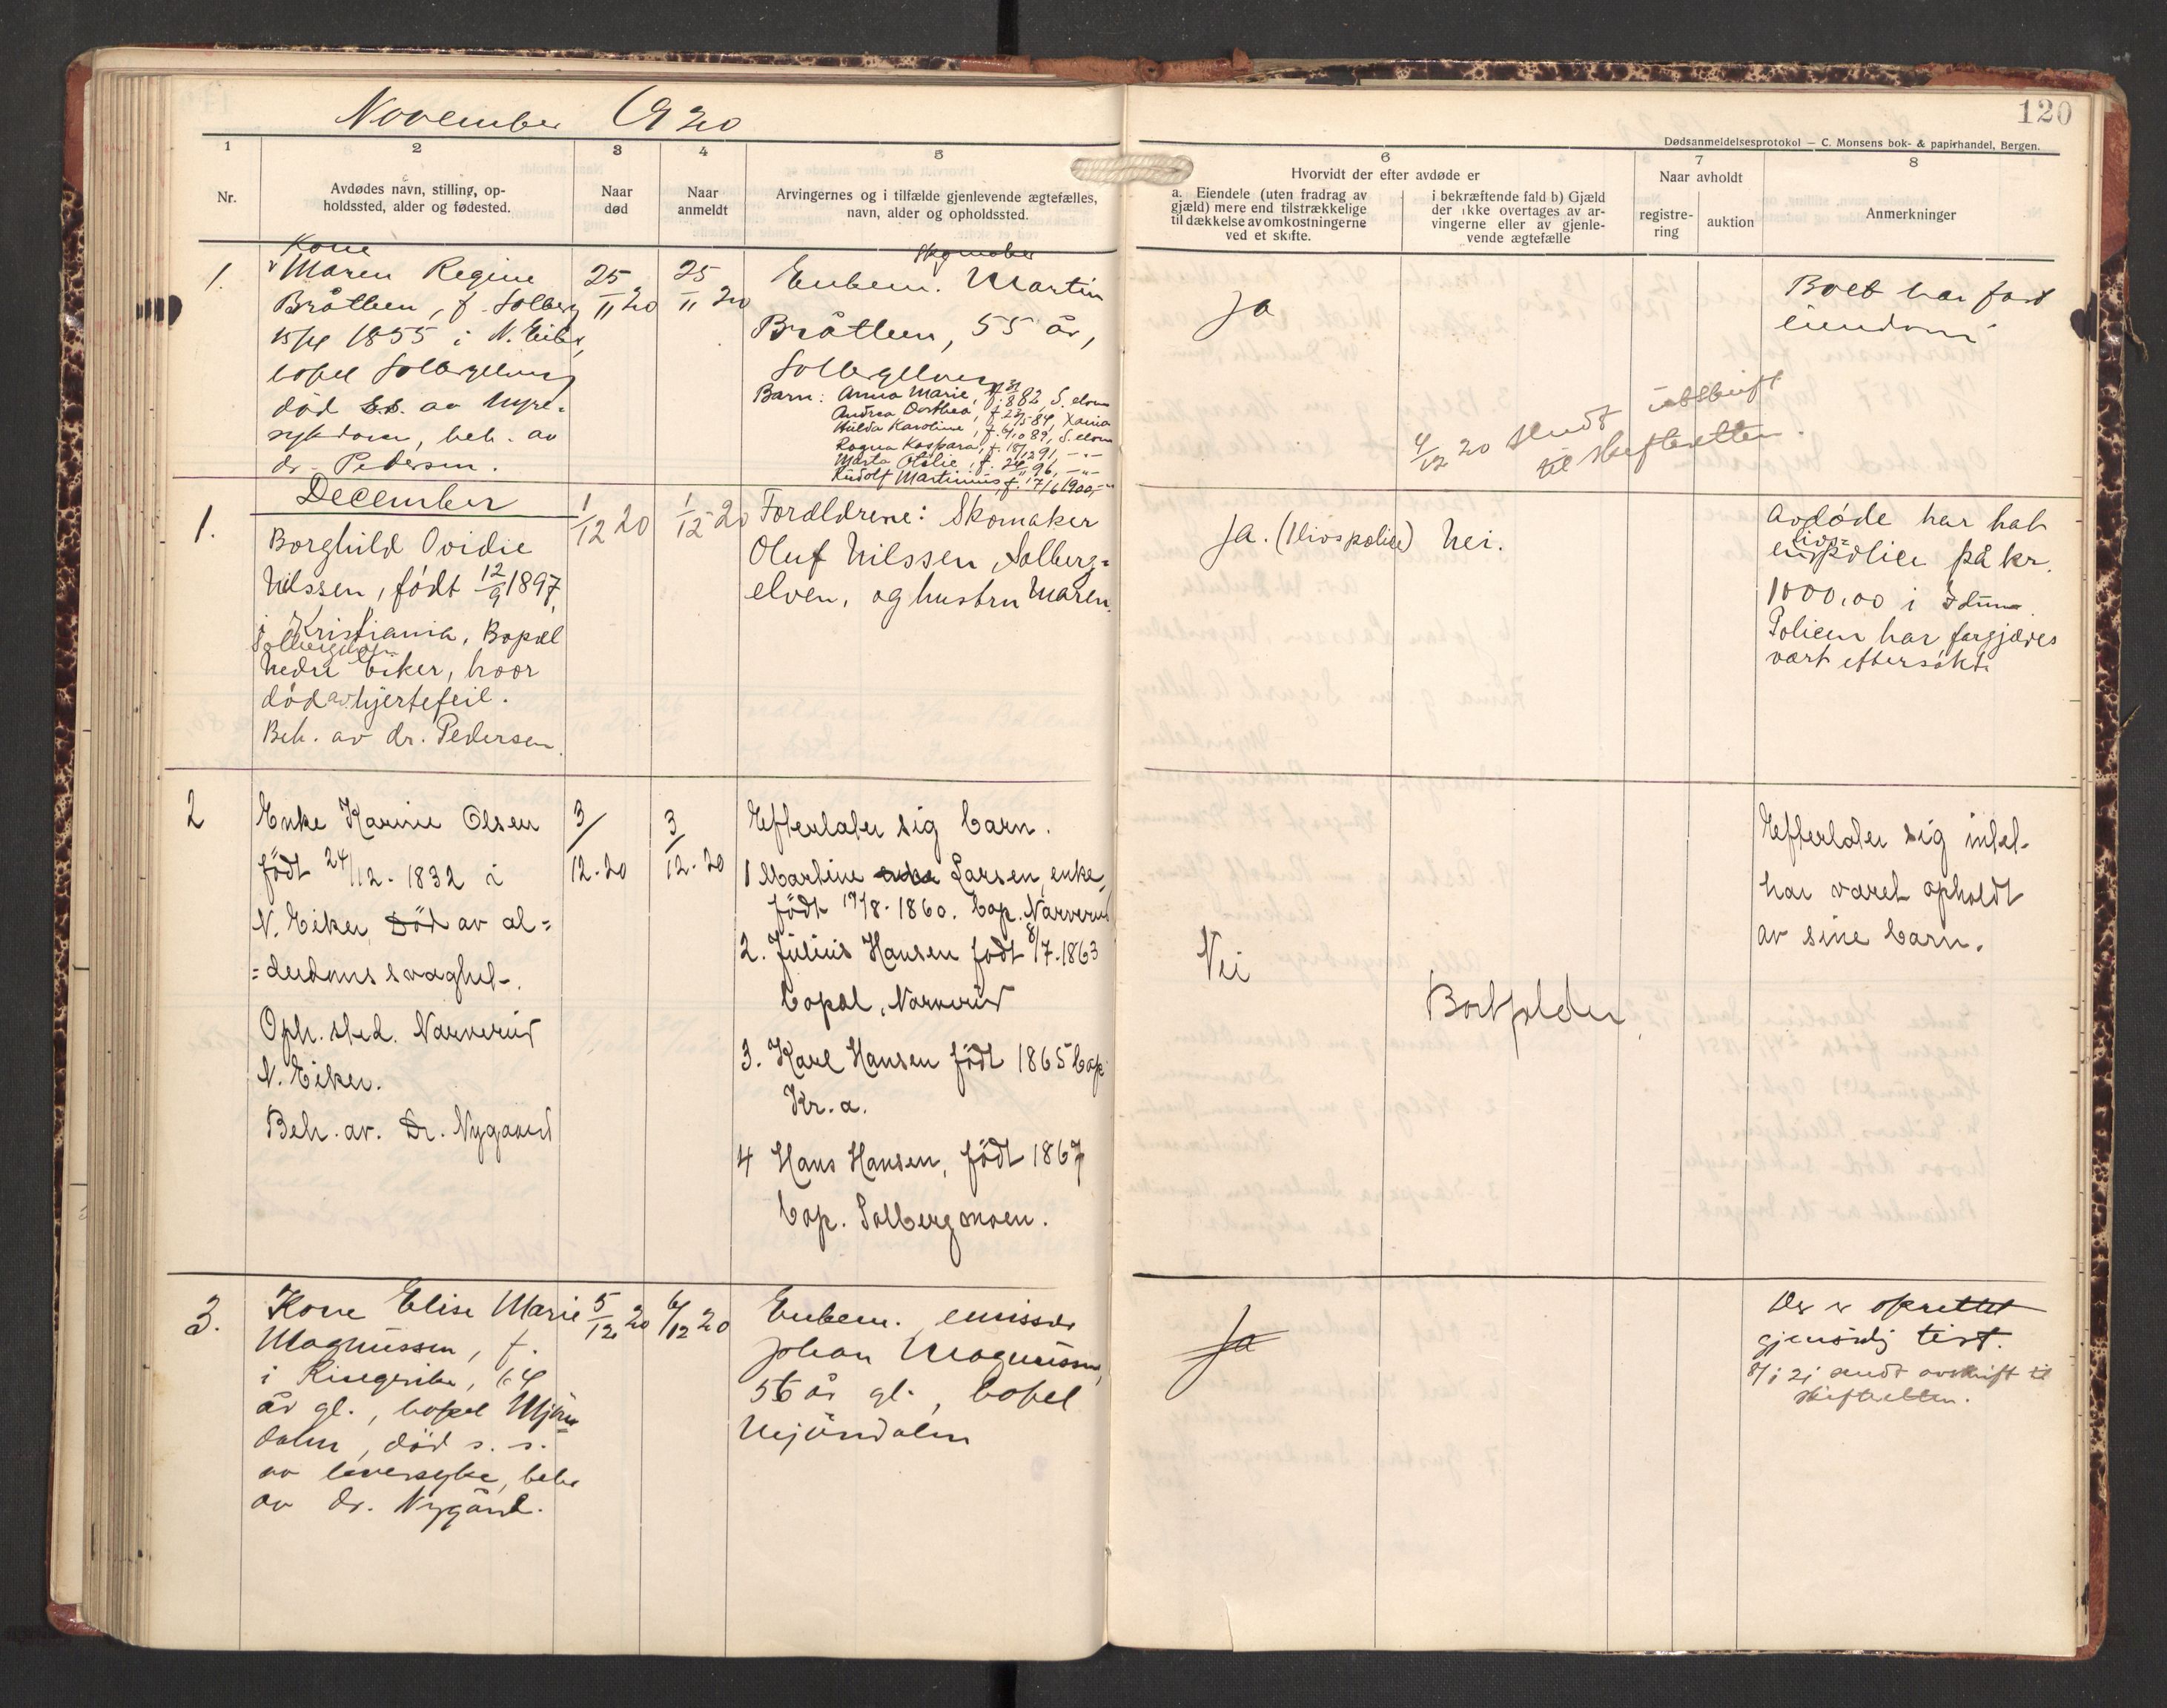 November 1920
120
Dødsanmeldelsesprotokol — C. Monsens bok- & papirhandel, Bergen.
1
2
3
4
5
6
7
8
Nr.
Avdødes navn, stilling, op-
holdssted, alder og fødested.
Naar
død
Naar
anmeldt
Arvingernes og i tilfælde gjenlevende ægtefælles,
navn, alder og opholdssted.
Hvorvidt der efter avdøde er
a. Eiendele (uten fradrag av
gjæld) mere end tilstrækkelige
til dækkelse av omkostningerne
ved et skifte.
i bekræftende fald b) Gjæld
der ikke overtages av ar-
vingerne eller av gjenle-
vende ægtefælle
Naar avholdt
registre-
ring
auktion
Anmerkninger
1.
Kone
Maren Regine
Bråtheen, f. Solberg
15/4 1855 i N. Eiker,
bopel Solbergelven
død s.s. av nyre-
sykdom, beh. av
dr. Pedersen.
25/11 20
25/11 20
skomaker
Enkem. Martin
Bråtheen, 55 år,
Solbergelven
Barn: Anna Marie, f. 882, S. elven
Andrea Dorthea, f. 23/5-84, Xania
Hilda Karoline, f. 6/10 89, S. elven
Ragna Kaspara, f. 18/12 91, -"-
Marta Otilie, f. 24/11 96, -"-
Rudolf Martinius, f. 17/6 1900, -"-
Ja
4/12 20 sendt utskrift
til skifteretten.
Boet har fast
eiendom
December
1.
Borghild Ovidie
Nilssen, født 12/9 1897,
i Kristiania, Bopæl
Solbergelven
Nedre Eiker, hvor
død av hjertefeil.
Beh. av dr. Pedersen.
1/12 20
1/12 20
Forældrene: Skomaker
Oluf Nilssen, Solberg=
elven, og hustru Maren.
Ja. (1 livspolice)
Nei.
Avdøde har hat
en livs-police på kr.
1000,00 i Idun.
Policen har forgjæves
vært eftersøkt.
2
Enke Karine Olsen
født 24/12. 1832 i
N. Eiker, Død av al=
=derdoms svaghet-.
Oph. sted. Narverud
N. Eiker.
Beh. av. Dr. Nygaard
3/12. 20
3/12. 20
Efterlater sig barn.
1 Martine enke Larsen, enke,
født 19/8. 1860. bop. Narverud
2. Julius Hansen født 8/7. 1863
bopæl, Narverud
3. Karl Hansen født 1865 bop
Kr. a.
4 Hans Hansen, født 1867
bop. Solbergmoen.
Nei
Bortfalder.
Efterlater sig intet-
har været opholdt
av sine barn.
3.
Kone Elise Marie
Magnussen, f.
i Ringerike, 64
år gl., bopel Mjøn=
dalen, død s. s.
av leversyke, beh.
av dr. Nygård.
5/12 20
6/12 20
Enkem. emissær
Johan Magnussen,
56 år gl., bopel
Mjøndalen
Ja
Der er oprettet
gjensidig test.
8/1 21 sendt avskrift til
skifteretten.